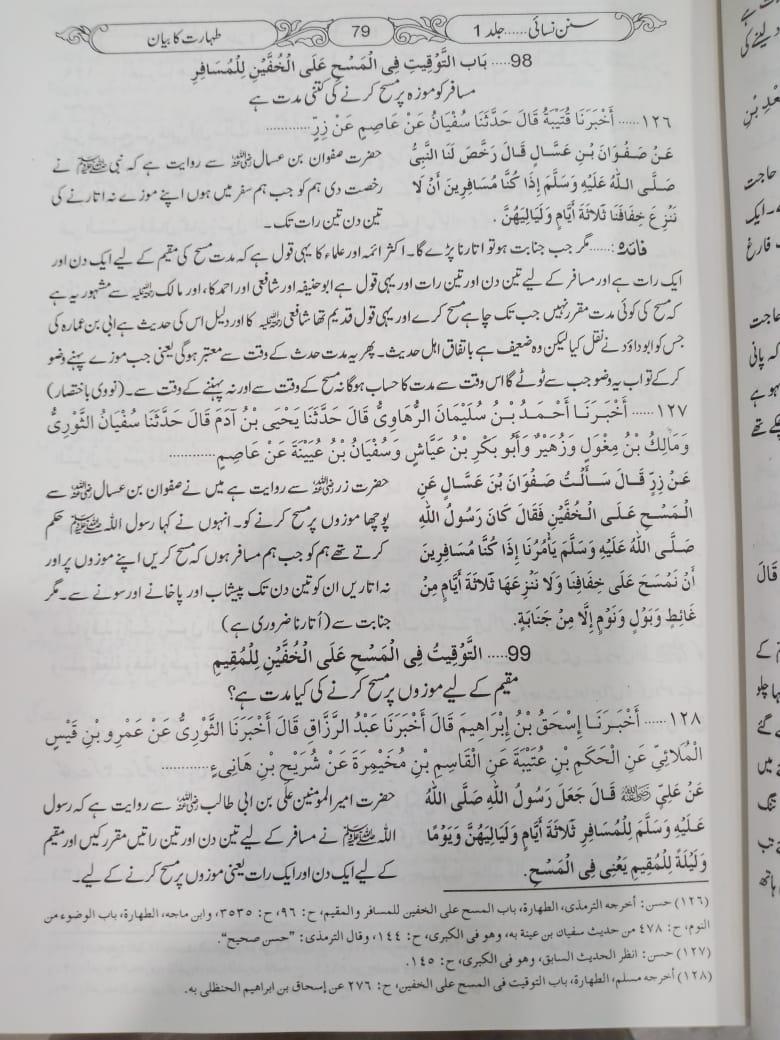 سنن نسائی......جلد 1
79
طہارت کا بیان
98..... بَاب التَّوْقِيتِ فِي الْمَسْحِ عَلَى الْخُفَّيْنِ لِلْمُسَافِرِ
مسافر کو موزہ پر مسح کرنے کی کتنی مدت ہے
۱۲۶...... أَخْبَرَنَا قُتَيْبَةُ قَالَ حَدَّثَنَا سُفْيَانُ عَنْ عَاصِمٍ عَنْ زِرٍّ............
عَنْ صَفْوَانَ بْنِ عَسَّالٍ قَالَ رَخَّصَ لَنَا النَّبِيُّ
صَلَّى اللَّهُ عَلَيْهِ وَسَلَّمَ إِذَا كُنَّا مُسَافِرِينَ أَنْ لَا
نَنْزِعَ خِفَافَنَا ثَلَاثَةَ أَيَّامٍ وَلَيَالِيَهُنَّ .
حضرت صفوان بن عسال رضی اللہ عنہ سے روایت ہے کہ نبی ﷺ نے
رخصت دی ہم کو جب ہم سفر میں ہوں اپنے موزے نہ اتارنے کی
تین دن تین رات تک۔
فائدہ:......مگر جب جنابت ہو تو اتارنا پڑے گا۔ اکثر ائمہ اور علماء کا یہی قول ہے کہ مدت مسح کی مقیم کے لیے ایک دن اور
ایک رات ہے اور مسافر کے لیے تین دن اور تین رات اور یہی قول ہے ابوحنیفہ اور شافعی اور احمد کا، اور مالک رضی اللہ عنہ سے مشہور یہ ہے
کہ مسح کی کوئی مدت مقرر نہیں جب تک چاہے مسح کرے اور یہی قول قدیم تھا شافعی رضی اللہ عنہ کا اور دلیل اس کی حدیث ہے ابی بن عمارہ کی
جس کو ابوداؤد نے نقل کیا لیکن وہ ضعیف ہے باتفاق اہل حدیث۔ پھر یہ مدت حدث کے وقت سے معتبر ہوگی یعنی جب موزے پہنے وضو
کر کے تو اب یہ وضو جب سے ٹوٹے گا اس وقت سے مدت کا حساب ہوگا نہ مسح کے وقت سے اور نہ پہننے کے وقت سے۔ (نووی باختصار)
۱۲۷...... أَخْبَرَنَا أَحْمَدُ بْنُ سُلَيْمَانَ الرُّهَاوِيُّ قَالَ حَدَّثَنَا يَحْيَى بْنُ آدَمَ قَالَ حَدَّثَنَا سُفْيَانُ الثَّوْرِيُّ
وَمَالِكُ بْنُ مِغْوَلٍ وَزُهَيْرٌ وَأَبُو بَكْرِ بْنُ عَيَّاشٍ وَسُفْيَانُ بْنُ عُيَيْنَةَ عَنْ عَاصِمٍ............
عَنْ زِرٍّ قَالَ سَأَلْتُ صَفْوَانَ بْنَ عَسَّالٍ عَنِ
الْمَسْحِ عَلَى الْخُفَّيْنِ فَقَالَ كَانَ رَسُولُ اللهِ
صَلَّى اللهُ عَلَيْهِ وَسَلَّمَ يَأْمُرُنَا إِذَا كُنَّا مُسَافِرِينَ
أَنْ نَمْسَحَ عَلَى خِفَافِنَا وَلَا نَنْزِعَهَا ثَلَاثَةَ أَيَّامٍ مِنْ
غَائِطٍ وَبَوْلٍ وَنَوْمٍ إِلَّا مِنْ جَنَابَةٍ.
حضرت زر رضی اللہ عنہ سے روایت ہے میں نے صفوان بن عسال رضی اللہ عنہ سے
پوچھا موزوں پر مسح کرنے کو۔ انہوں نے کہا رسول اللہ ﷺ حکم
کرتے تھے ہم کو جب ہم مسافر ہوں کہ مسح کریں اپنے موزوں پر اور
نہ اتاریں ان کو تین دن تک پیشاب اور پاخانے اور سونے سے۔ مگر
جنابت سے (اُتارنا ضروری ہے)
99..... التَّوْقِيتُ فِي الْمَسْحِ عَلَى الْخُفَّيْنِ لِلْمُقِيمِ
مقیم کے لیے موزوں پر مسح کرنے کی کیا مدت ہے؟
۱۲۸...... أَخْبَرَنَا إِسْحَقُ بْنُ إِبْرَاهِيمَ قَالَ أَخْبَرَنَا عَبْدُ الرَّزَّاقِ قَالَ أَخْبَرَنَا الثَّوْرِيُّ عَنْ عَمْرِو بْنِ قَيْسٍ
الْمُلَائِيِّ عَنِ الْحَكَمِ بْنِ عُتَيْبَةَ عَنِ الْقَاسِمِ بْنِ مُخَيْمِرَةَ عَنْ شُرَيْحِ بْنِ هَانِيءٍ............
عَنْ عَلِيٍّ رضی اللہ عنہ قَالَ جَعَلَ رَسُولُ اللهِ صَلَّى اللهُ
عَلَيْهِ وَسَلَّمَ لِلْمُسَافِرِ ثَلَاثَةَ أَيَّامٍ وَلَيَالِيَهُنَّ وَيَوْمًا
وَلَيْلَةً لِلْمُقِيمِ يَعْنِي فِي الْمَسْحِ.
حضرت امیر المؤمنین علی بن ابی طالب رضی اللہ عنہ سے روایت ہے کہ رسول
اللہ ﷺ نے مسافر کے لیے تین دن اور تین راتیں مقرر کیں اور مقیم
کے لیے ایک دن اور ایک رات یعنی موزوں پر مسح کرنے کے لیے۔
(۱۲۶) حسن: أخرجه الترمذى، الطهارة، باب المسح على الخفين للمسافر والمقيم، ح: ۹۶، ح: ۳۵۳۵، وابن ماجه، الطهارة، باب الوضوء من
النوم، ح: ۴۷۸ من حديث سفيان بن عينة به، وهو فى الكبرى، ح: ۱۴۴، وقال الترمذى: "حسن صحيح".
(۱۲۷) حسن: انظر الحديث السابق، وهو فى الكبرى، ح: ۱۴۵.
(۱۲۸) أخرجه مسلم، الطهارة، باب التوقيت فى المسح على الخفين، ح: ۲۷۶ عن إسحاق بن ابراهيم الحنظلى به.
دینے کی
حاجت
ایک
فارغ
حاجت
کہ پانی
قَالَ